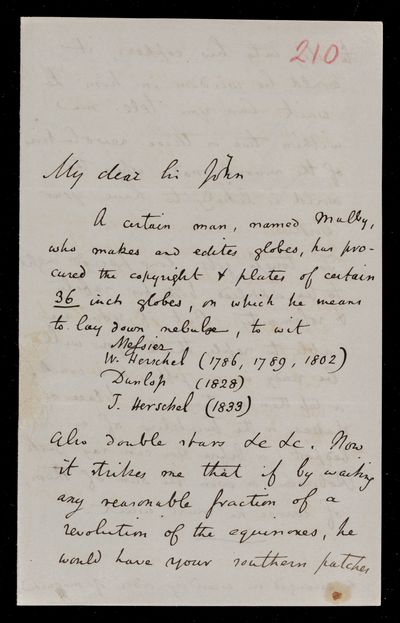 210
My dear Sir John
A certain man, named Malby,
who makes and edites globes, has pro-
cured the copyright & plates of certain
36 inch globes, on which he means
to lay down nebulæ, to wit
Messier
W. Herschel (1786, 1789, 1802)
Dunlop (1828)
J. Herschel (1833)
Also double stars &c &c. Now
it strikes me that if by waiting
any reasonable fraction of a
revolution of the equinoxes, he
would have your southern patches